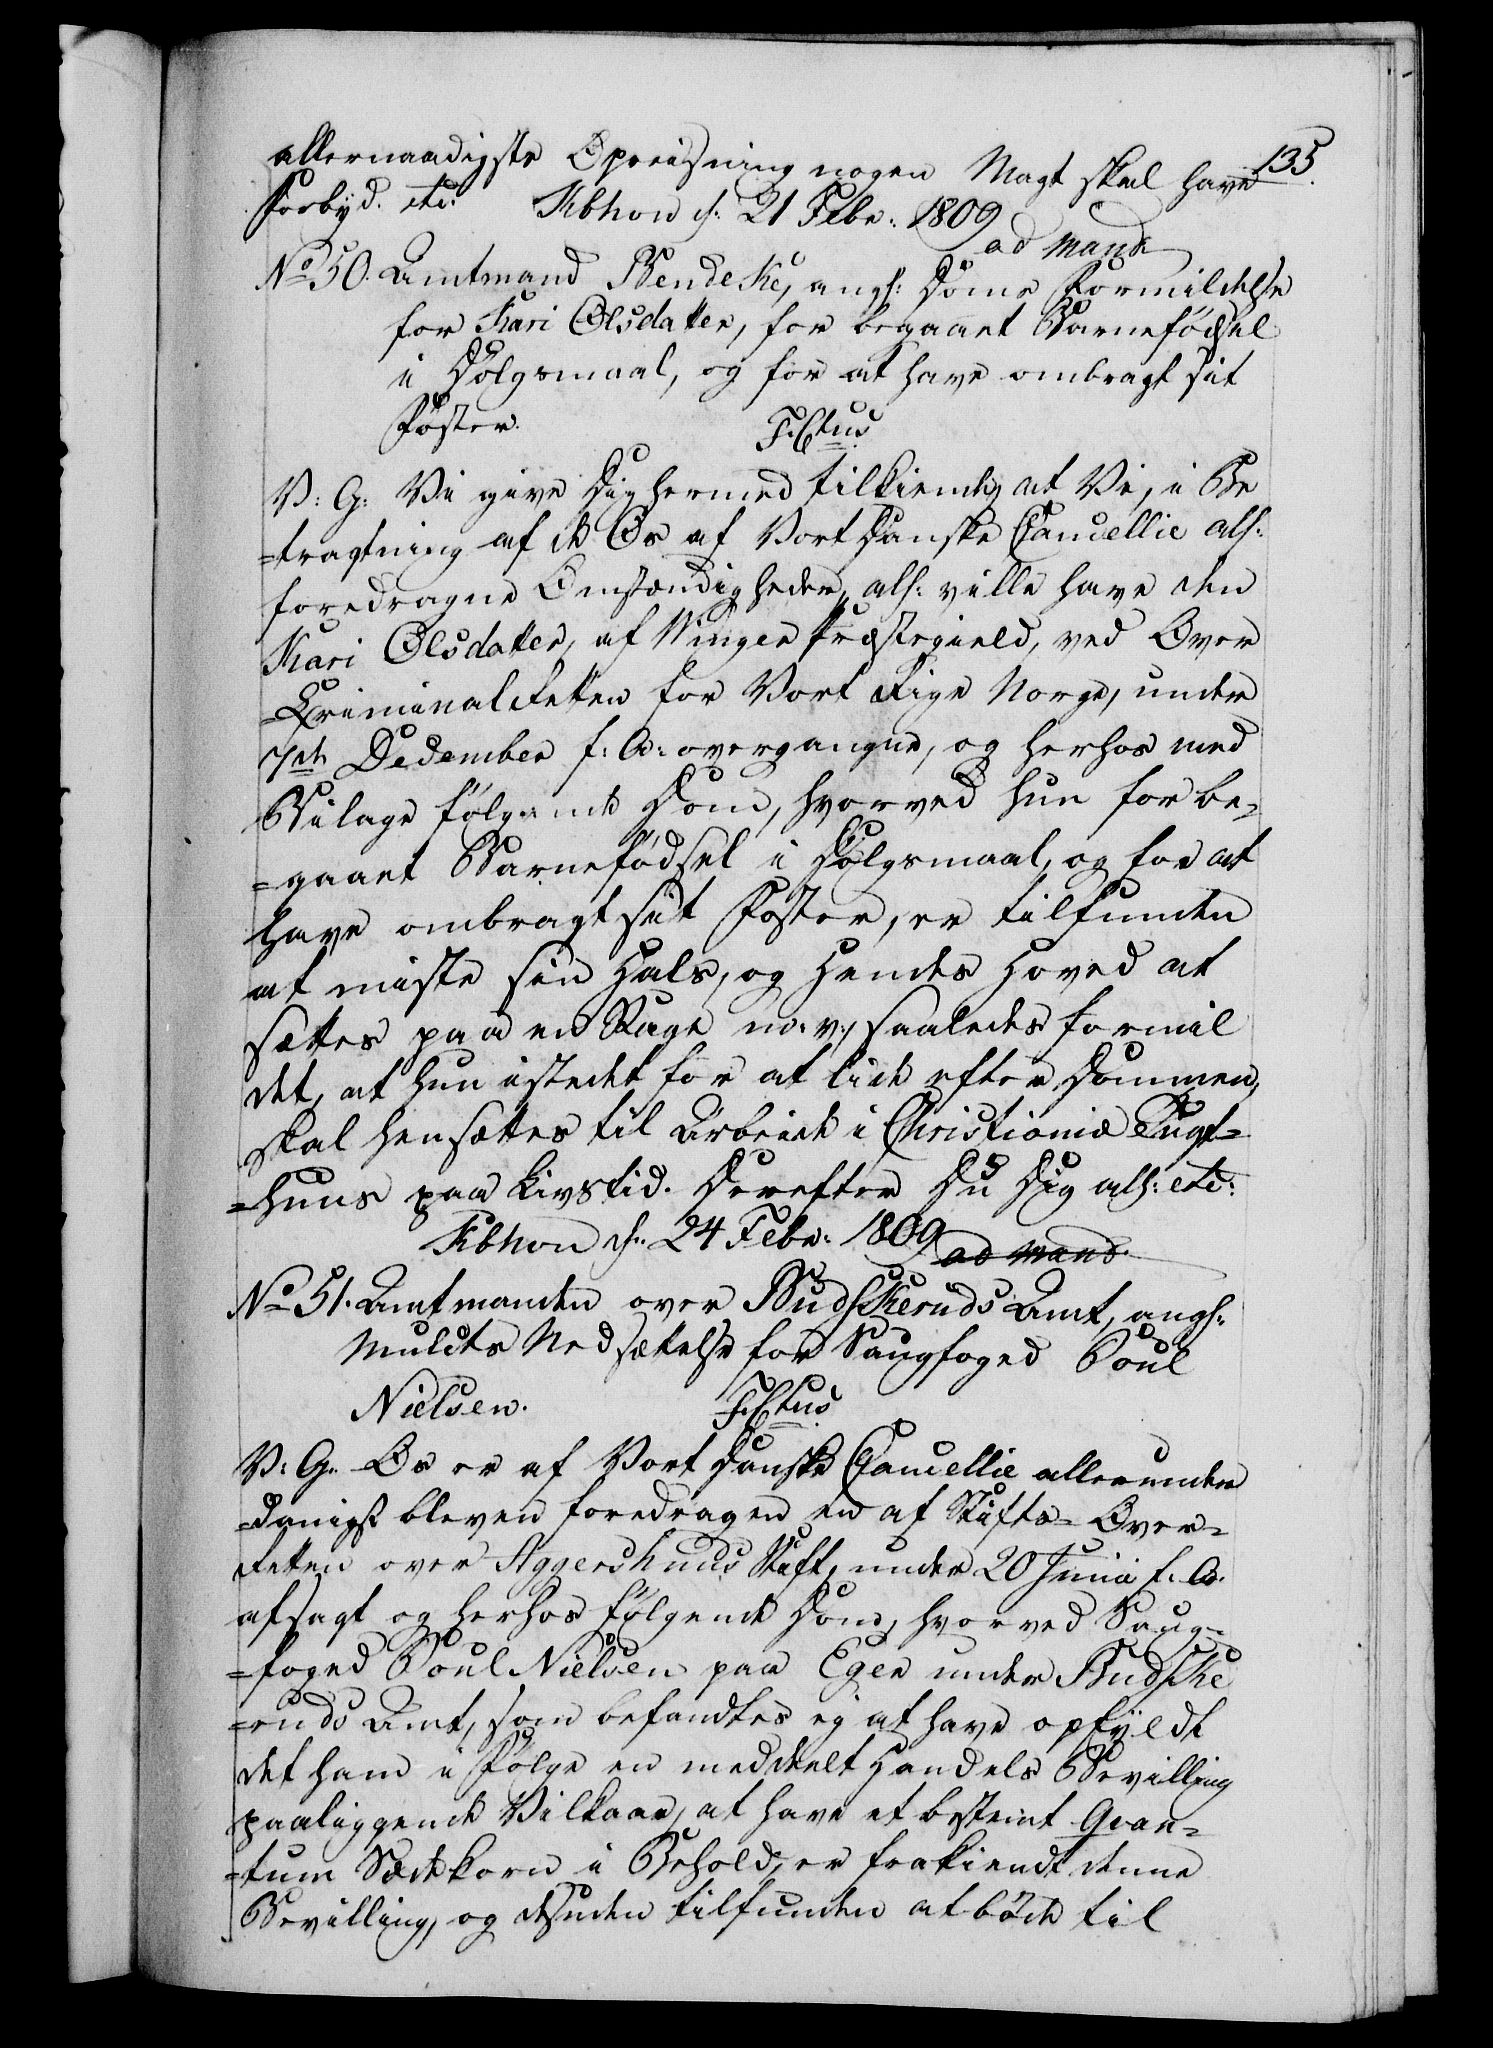 135.
allernaadigste Opreisning nogen Magt skal have
Forbyd. etc: Kbhvn d: 21 Febr: 1809
ad mand
No 50. Amtmand Bendeke, angl: Doms Formildelse
for Kari Olsdatter, for begaaet Barnefødsel
i Dølgsmaal, og for at have ombragt sit
Foster.
V: G: Vi give Dig hermed tilkiende, at Vi, i Be
=tragtning af de Os af Vort Danske Cancellie all:
foredragne Omstændigheder, all: ville have den
Kari Olsdatter, af Winger Præstegield, ved Over
=Criminalretten for Vort Rige Norge, under
7de December f: A: overgangne, og herhos med
Bilage følgende Dom, hvorved hun for be=
=gaaet Barnefødsel i Dølgsmaal, og for at
have ombragt sit Foster, er tilfunden
at miste sin Hals, og hendes Hoved at
sættes paa en Stage m: v:, saaledes formil
det, at hun istedet for at lide efter Dommen,
skal hensættes til Arbeide i Christiania Tugt=
=huus paa Livstid. Derefter Du Dig all: etc:
Kbhvn d: 24 Febr: 1809
ad mand.
No 51. Amtmanden over Budskeruds Amt, angl:
Mulcts Nedsættelse for Saugfoged Poul
Nielsen.
V: G: Os er af Vort Danske Cancellie allerunder
=danigst bleven foredragen en af Stifts= Over=
retten over Aggershuus Stift, under 20 Junii f: A:
afsagt og herhos følgende Dom, hvorved Saug=
=foged Poul Nielsen paa Eger under Budske
=ruds Amt, som befandtes ej at have opfyldt
det ham i Følge en meddeelt Handels Bevilling
paaliggende Vilkaar, at have et bestemt Qvan=
=tum Sædekorn i Behold, er frakiendt denne
Bevilling, og desuden tilfunden at bøde til